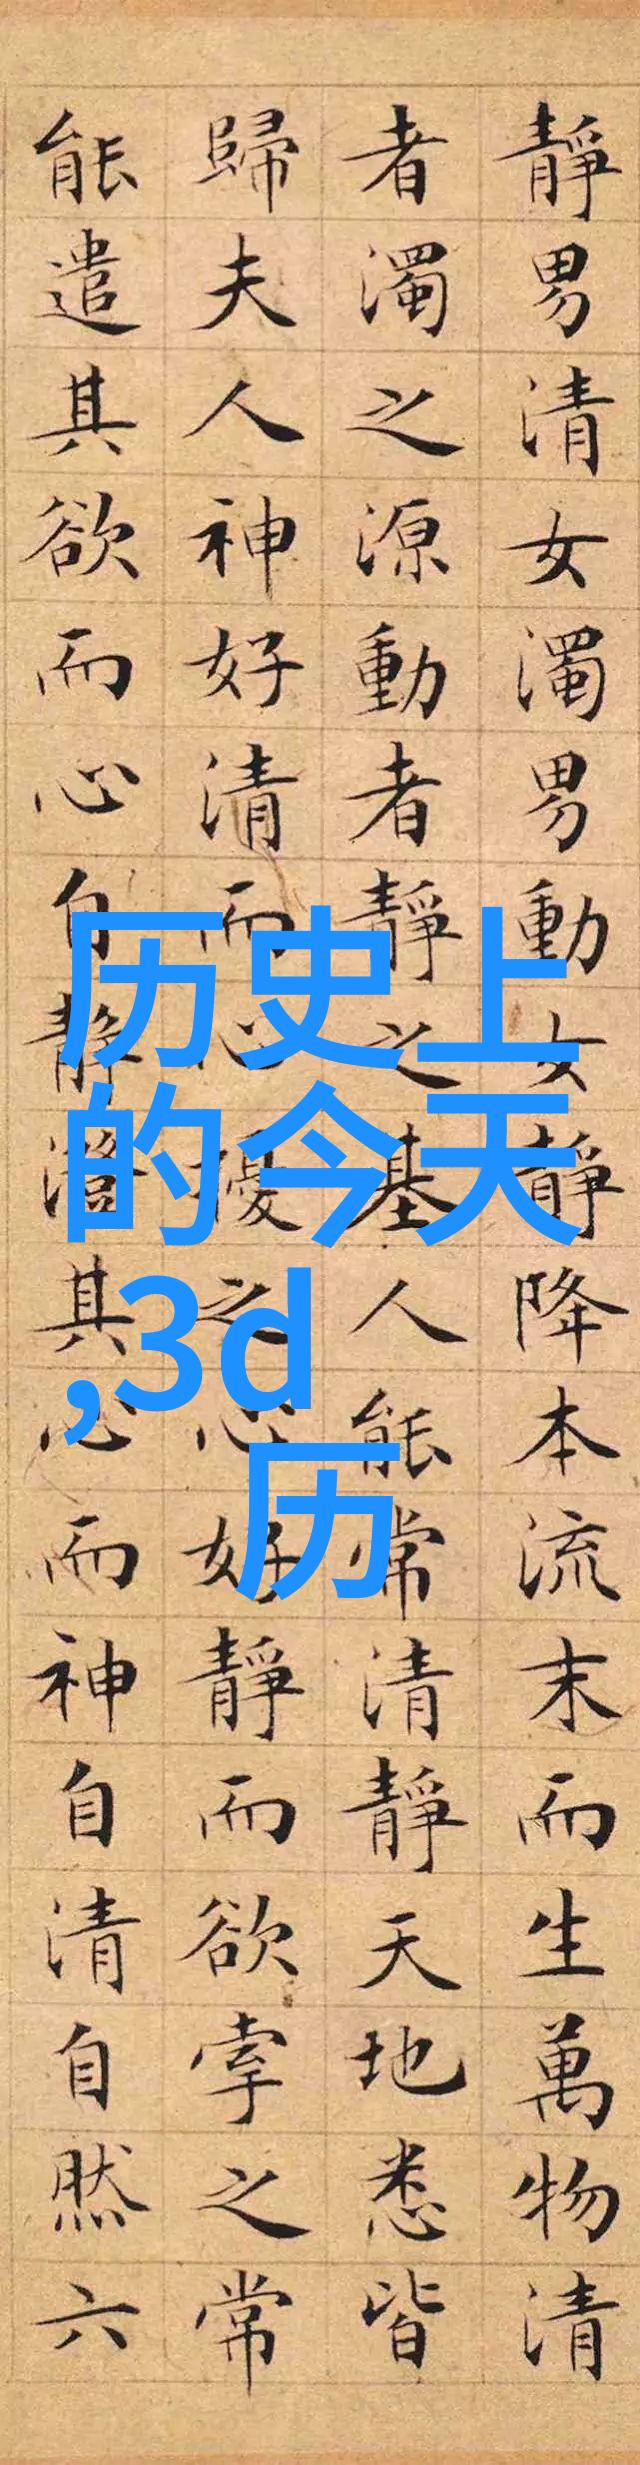 靜男清女濁男動女靜降本流末而生萬物清
者濁之源動者靜之基人能常清靜天地悉皆
歸夫人神好清而心擾之心好靜而欲牽之常
能遣其欲而心自靜澄其心而神自清自然六
历史上
的今天
,3d
历